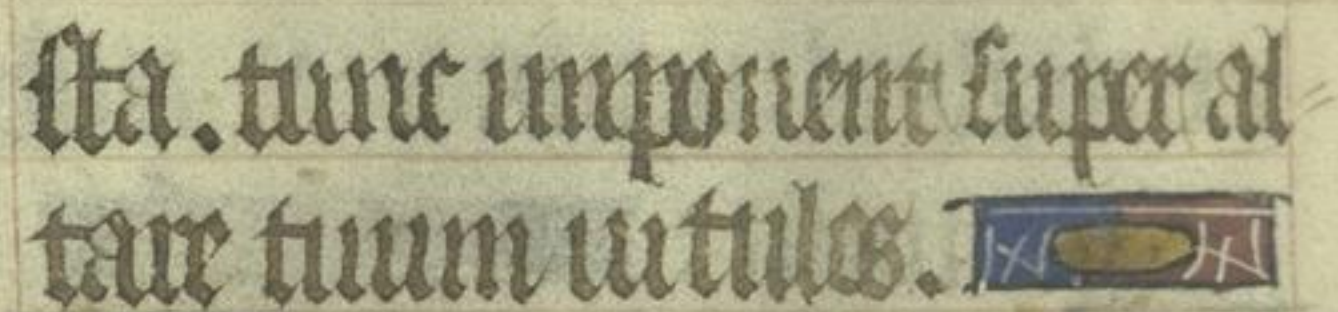 sta. tunc imponent super al
tare tuum uitulos.